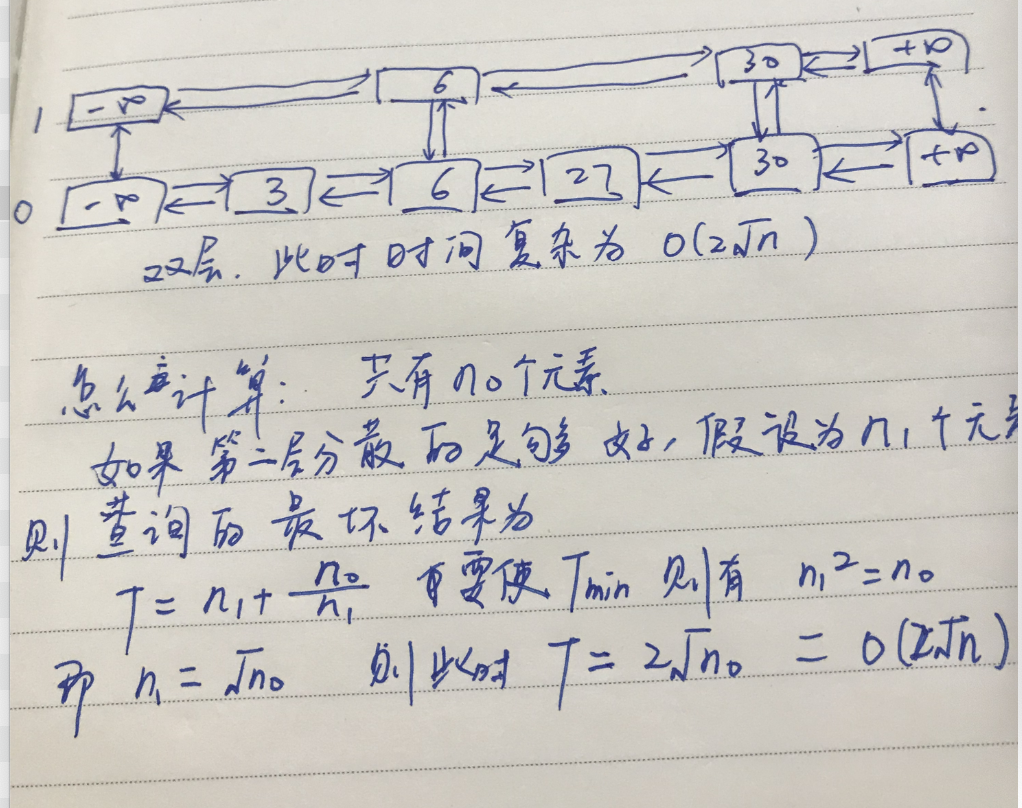 1 -∞ 6 30 +∞
0 -∞ 3 6 27 30 +∞
双层. 此时时间复杂为 O(2√n)
怎么计算: 共有 n₀个元素
如果第二层分散的足够好, 假设为 n₁个元素
则查询的最坏结果为
T = n₁ + n₀/n₁ 要使 Tmin 则有 n₁² = n₀
即 n₁ = √n₀ 则此时 T = 2√n₀ = O(2√n)